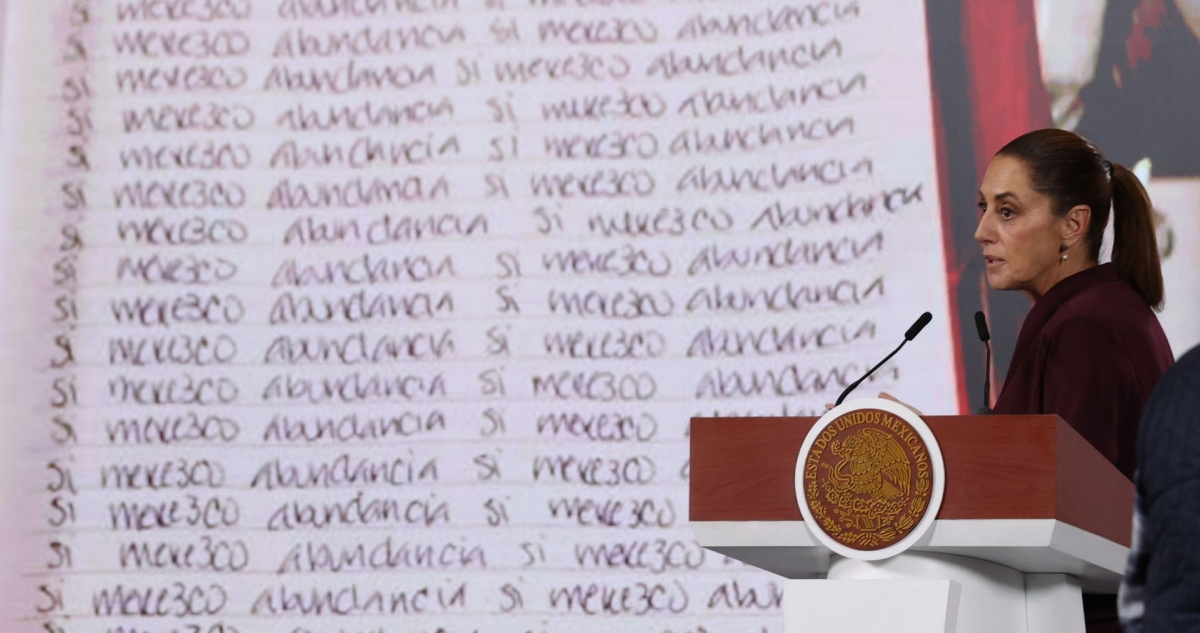 si merezco abundancia si merezco abundancia
si merezco abundancia si merezco abundancia
si merezco abundancia si merezco abundancia
si merezco abundancia si merezco abundancia
si merezco abundancia si merezco abundancia
si merezco abundancia si merezco abundancia
si merezco abundancia si merezco abundancia
si merezco abundancia si merezco abundancia
si merezco abundancia si merezco abundancia
si merezco abundancia si merezco abundancia
si merezco abundancia si merezco
si merezco abundancia si merezco
si merezco abundancia si merezco
si merezco abundancia si merezco
si merezco abundancia si merezco abun
ESTADOS UNIDOS MEXICANOS